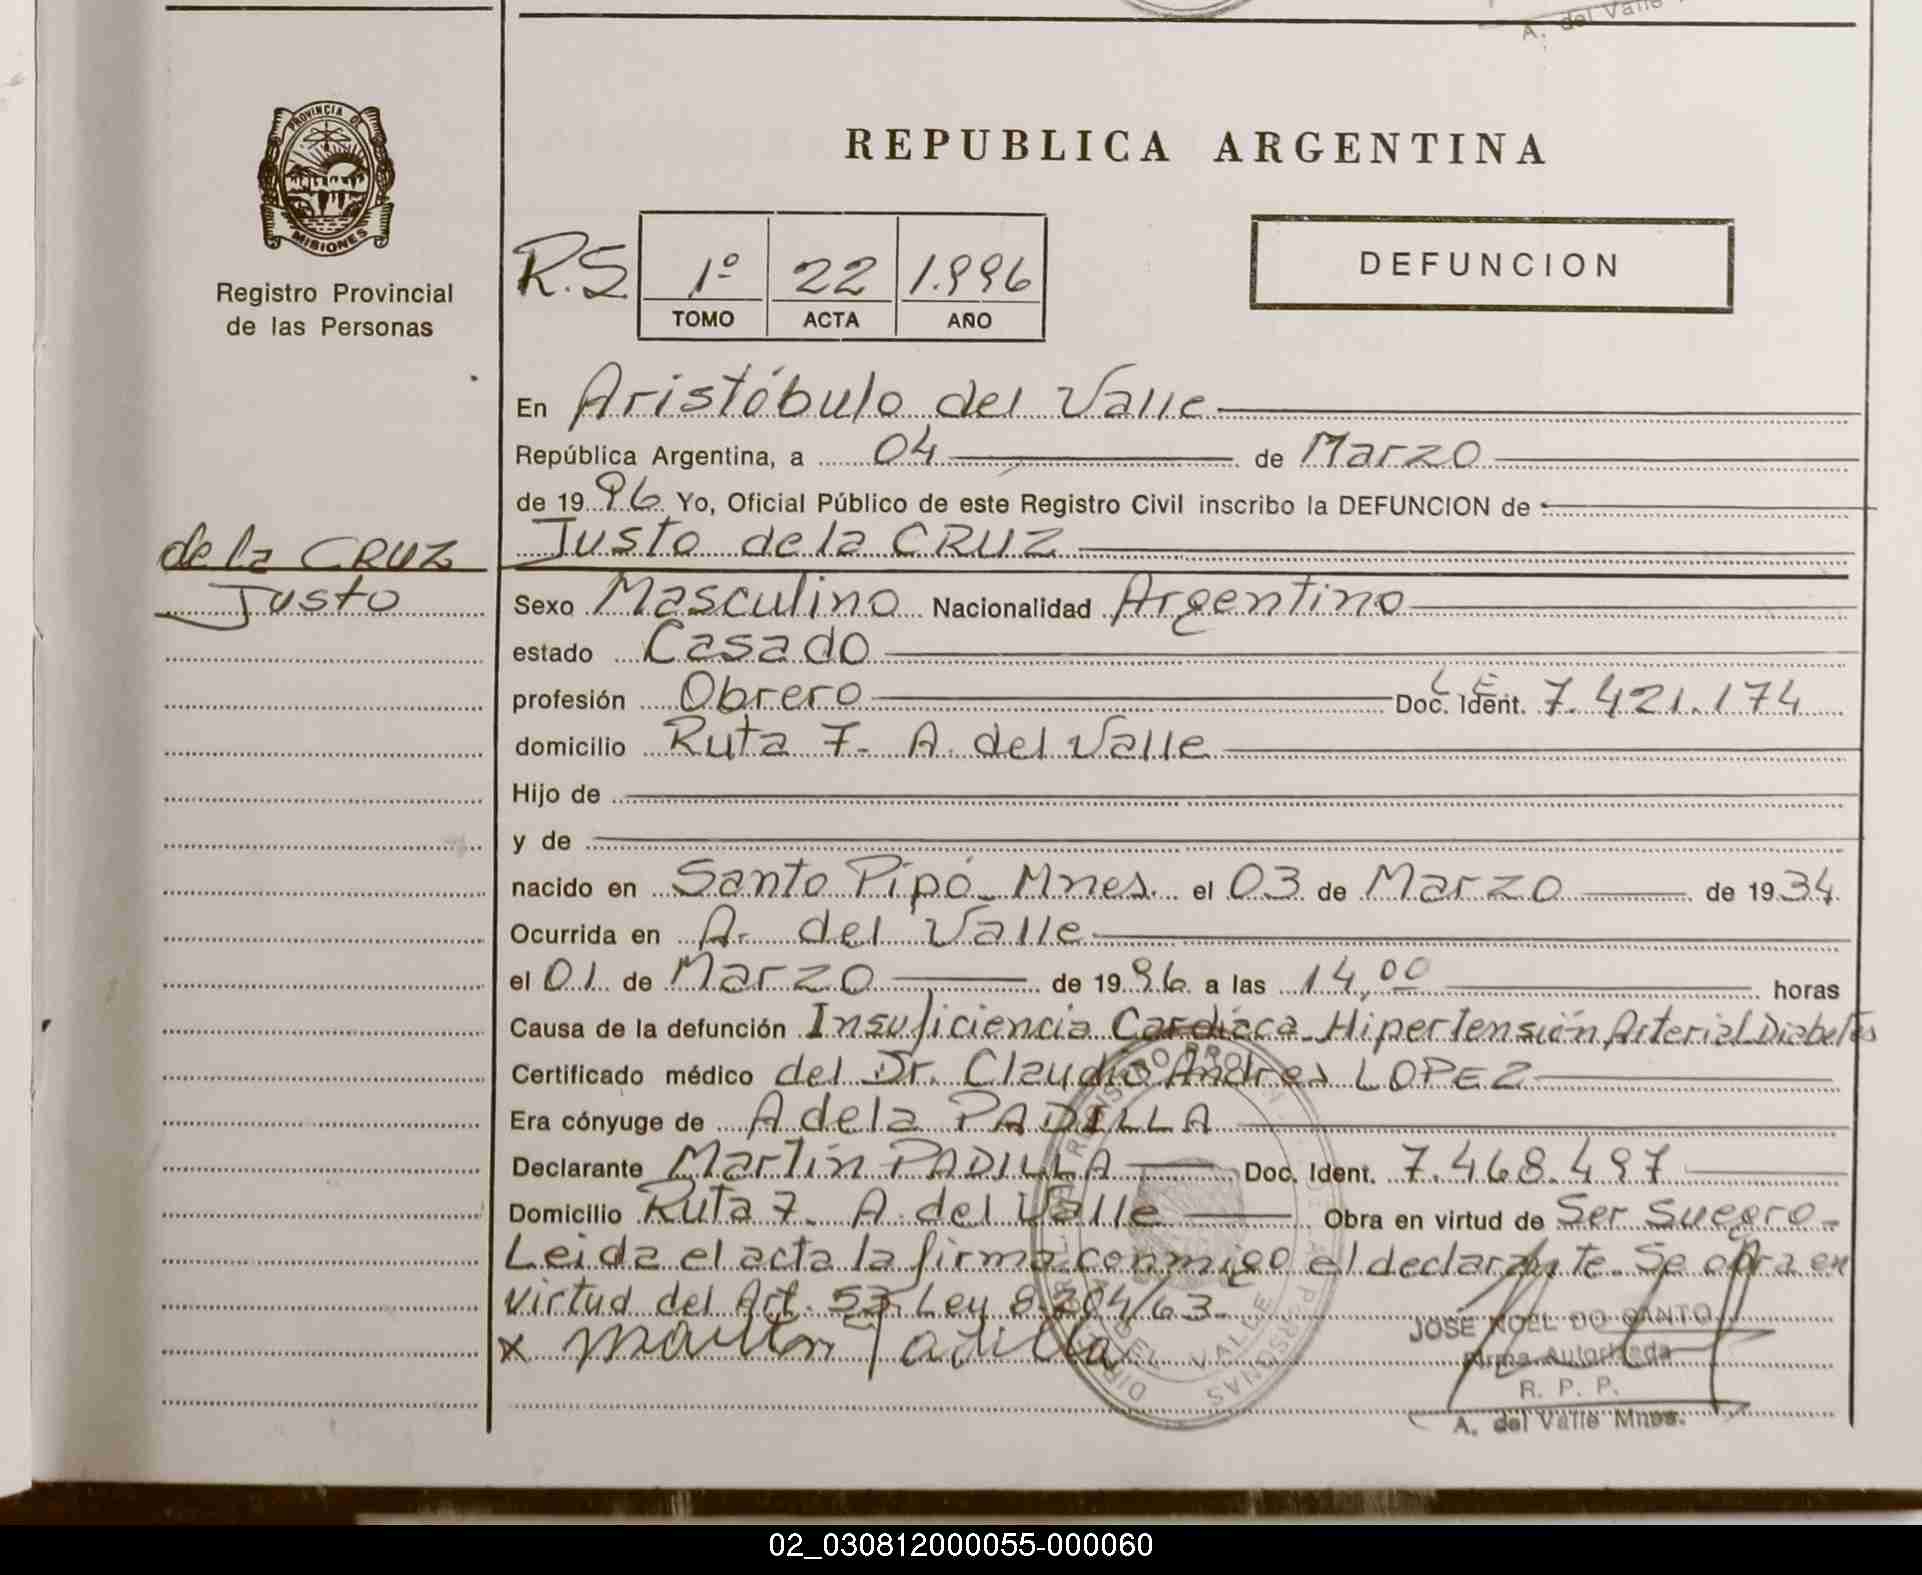 A. del Valle
PROVINCIA DE
MISIONES
Registro Provincial
de las Personas
REPUBLICA ARGENTINA
DEFUNCION
R.S
1º 22 1.996
TOMO ACTA AÑO
En Aristóbulo del Valle
República Argentina, a 04 de Marzo
de 1996 Yo, Oficial Público de este Registro Civil inscribo la DEFUNCION de
Justo de la CRUZ
de la CRUZ
Justo
Sexo Masculino Nacionalidad Argentino
estado Casado
profesión Obrero Doc. Ident. L.E. 7.421.174
domicilio Ruta 7- A. del Valle
Hijo de
y de
nacido en Santo Pipó - Mnes. el 03 de Marzo de 1934
Ocurrida en A. del Valle
el 01 de Marzo de 1996 a las 14,00 horas
Causa de la defunción Insuficiencia Cardiaca - Hipertensión Arterial Diabetes
Certificado médico del Dr. Claudio Andres LOPEZ
Era cónyuge de Adela PADILLA
Declarante Martín PADILLA Doc. Ident. 7.468.497
Domicilio Ruta 7- A. del Valle Obra en virtud de Ser Suegro-
Leida el acta la firma conmigo el declarante. Se obra en
virtud del Art. 53 Ley 8.204/63-
x Martin Padilla
JOSE NOEL DO SANTO
Firma Autorizada
R. P. P.
A. del Valle Mnes.
02_030812000055-000060